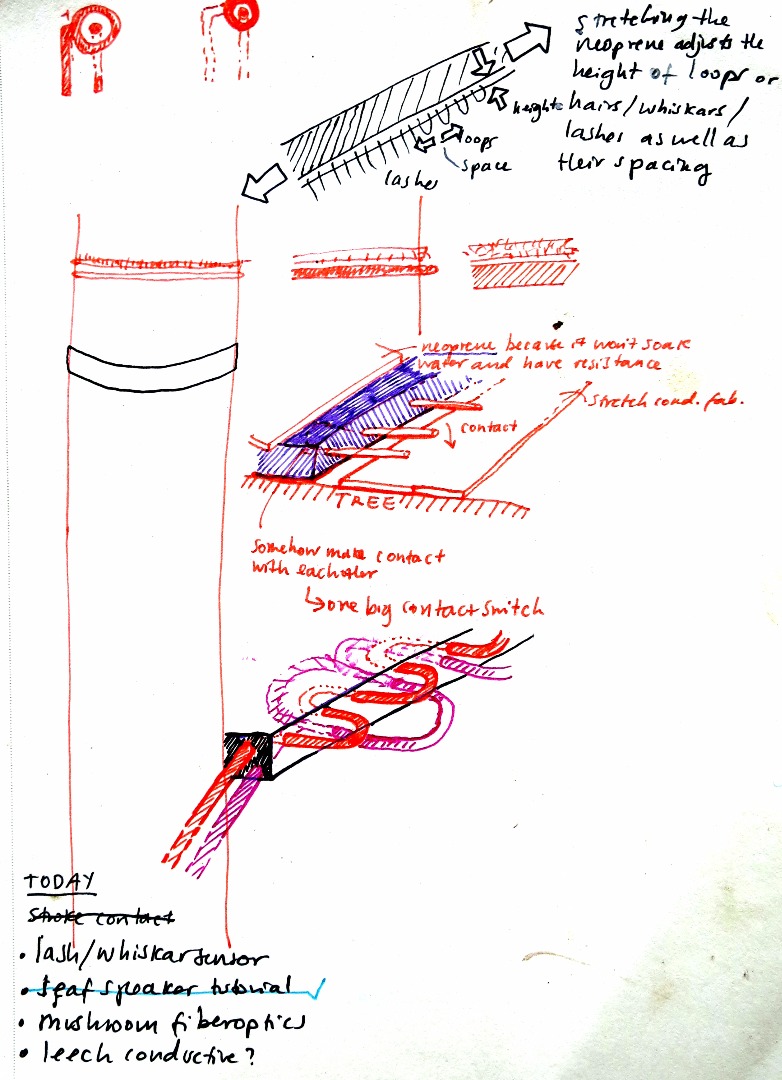 stretching the
neoprene adjusts the
height of loops or
hairs/whiskars/
lashes as well as
their spacing
height
loops
space
lashes
neoprene because it won't soak
water and have resistance
stretch cond. fab.
contact
TREE
somehow make contact
with eachother
↳one big contact switch
TODAY
stroke contact
• lash/whiskar sensor
• leaf speaker tutorial ✓
• mushroom fiberoptics
• leech conductive?